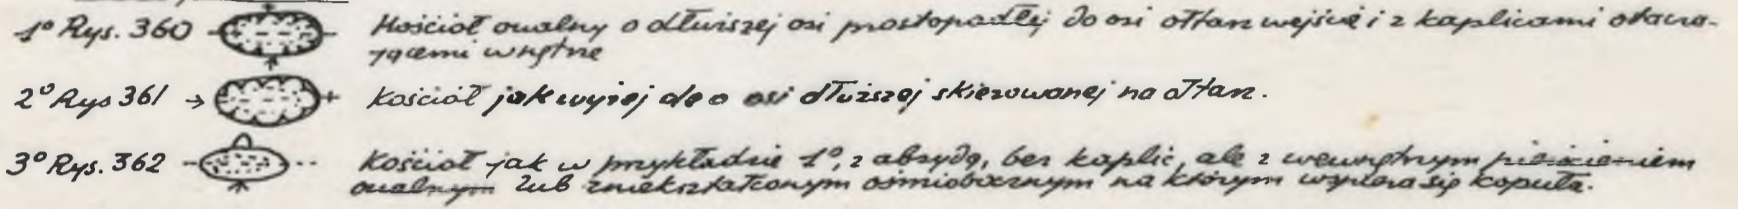 1° Rys. 360 Kościół owalny o dłuższej osi prostopadłej do osi ołtarz wejście i z kaplicami otacza-
jącemi wnętrze
2° Rys 361 Kościół jak wyżej ale o osi dłuższej skierowanej na ołtarz.
3° Rys. 362 Kościół jak w przykładzie 1°, z absydą, bez kaplic, ale z wewnętrznym pierścieniem
owalnym lub zniekształconym ośmiobocznym na którym wspiera się kopuła.